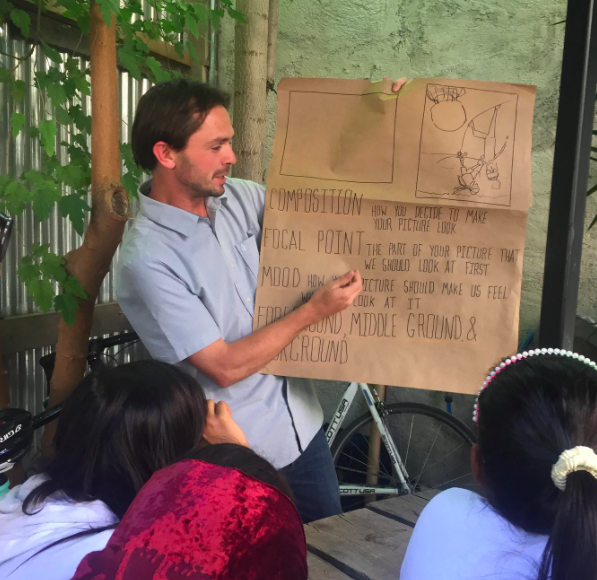 COMPOSITION HOW YOU DECIDE TO MAKE
YOUR PICTURE LOOK
FOCAL POINT THE PART OF YOUR PICTURE THAT
WE SHOULD LOOK AT FIRST
MOOD HOW PICTURE SHOULD MAKE US FEEL
LOOK AT IT
MIDDLE GROUND, &
SCOTTUSA
COTTUSA